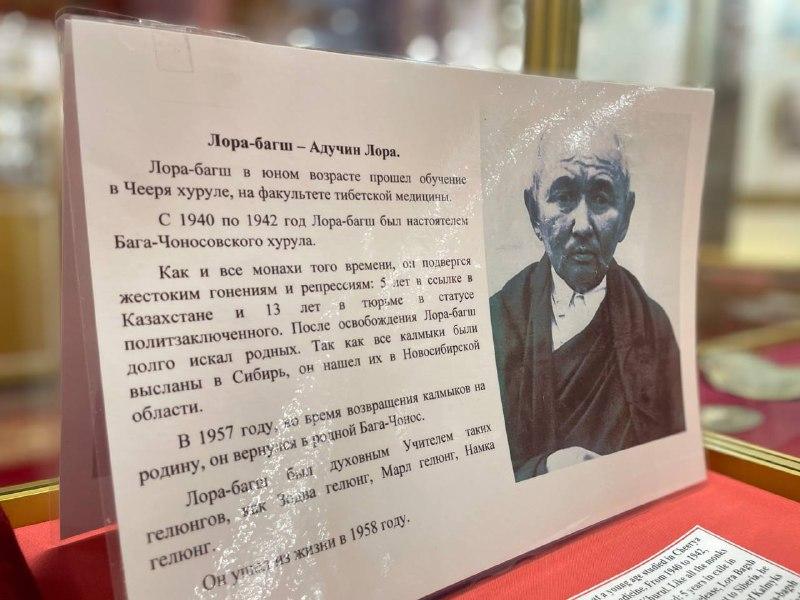 Лора-багш – Адучин Лора.
Лора-багш в юном возрасте прошел обучение
в Чееря хуруле, на факультете тибетской медицины.
С 1940 по 1942 год Лора-багш был настоятелем
Бага-Чоносовского хурула.
Как и все монахи того времени, он подвергся
жестоким гонениям и репрессиям: 5 лет в ссылке в
Казахстане и 13 лет в тюрьме в статусе
политзаключенного. После освобождения Лора-багш
долго искал родных. Так как все калмыки были
высланы в Сибирь, он нашел их в Новосибирской
области.
В 1957 году, во время возвращения калмыков на
родину, он вернулся в родной Бага-Чонос.
Лора-багш был духовным Учителем таких
гелюнгов, как Зодва гелюнг, Марл гелюнг, Намка
гелюнг.
Он ушел из жизни в 1958 году.
at a young age studied in Cheerya
medicine. From 1940 to 1942,
Khurul. Like all the monks
5 years in exile in
release, Lora Bagsh
to Siberia, he
of Kalmyks